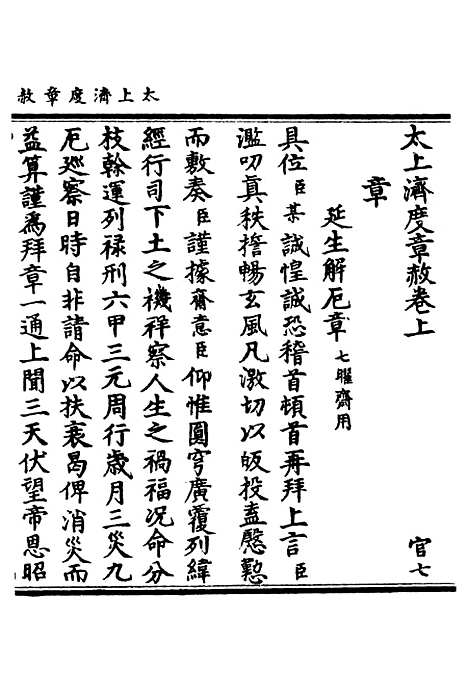 太上濟度章赦
太上濟度章赦卷上 官七
章
延生解厄章七曜齋用
具位臣某誠惶誠恐稽首頓首再拜上言臣
濫叨真秩擔暢玄風凡激切以皈投盍慇懃
而敷奏臣謹據齋意臣仰惟圓穹廣覆列緯
經行司下土之禨祥察人生之禍福况命分
枝幹運列禄刑六甲三元周行歲月三災九
厄廵察日時自非請命以扶衰曷俾消災而
益算謹為拜章一通上聞三天伏望帝恩昭